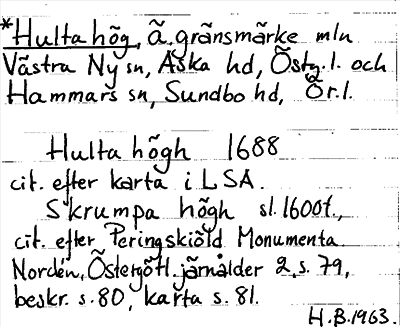 *Hulta hög, ä. gränsmärke mln
Västra Ny sn, Aska hd, Östg. l. och
Hammars sn, Sundbo hd, Ör. l.
Hulta högh 1688
cit. efter karta i LSA.
Skrumpa högh sl. 1600t.,
cit. efter Peringskiöld Monumenta
Nordén, Östergötl. järnålder 2, s. 79,
beskr. s. 80, karta s. 81.
H.B. 1963.